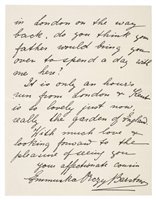 in London on the way
back, do you think your
father would bring you
over to spend a day with
me here?
It is only an hour's
run from London & Kent
is so lovely just now
really the garden of England
With much love &
looking forward to the
pleasure of seeing you
your affectionate cousin
Orczy Barstow